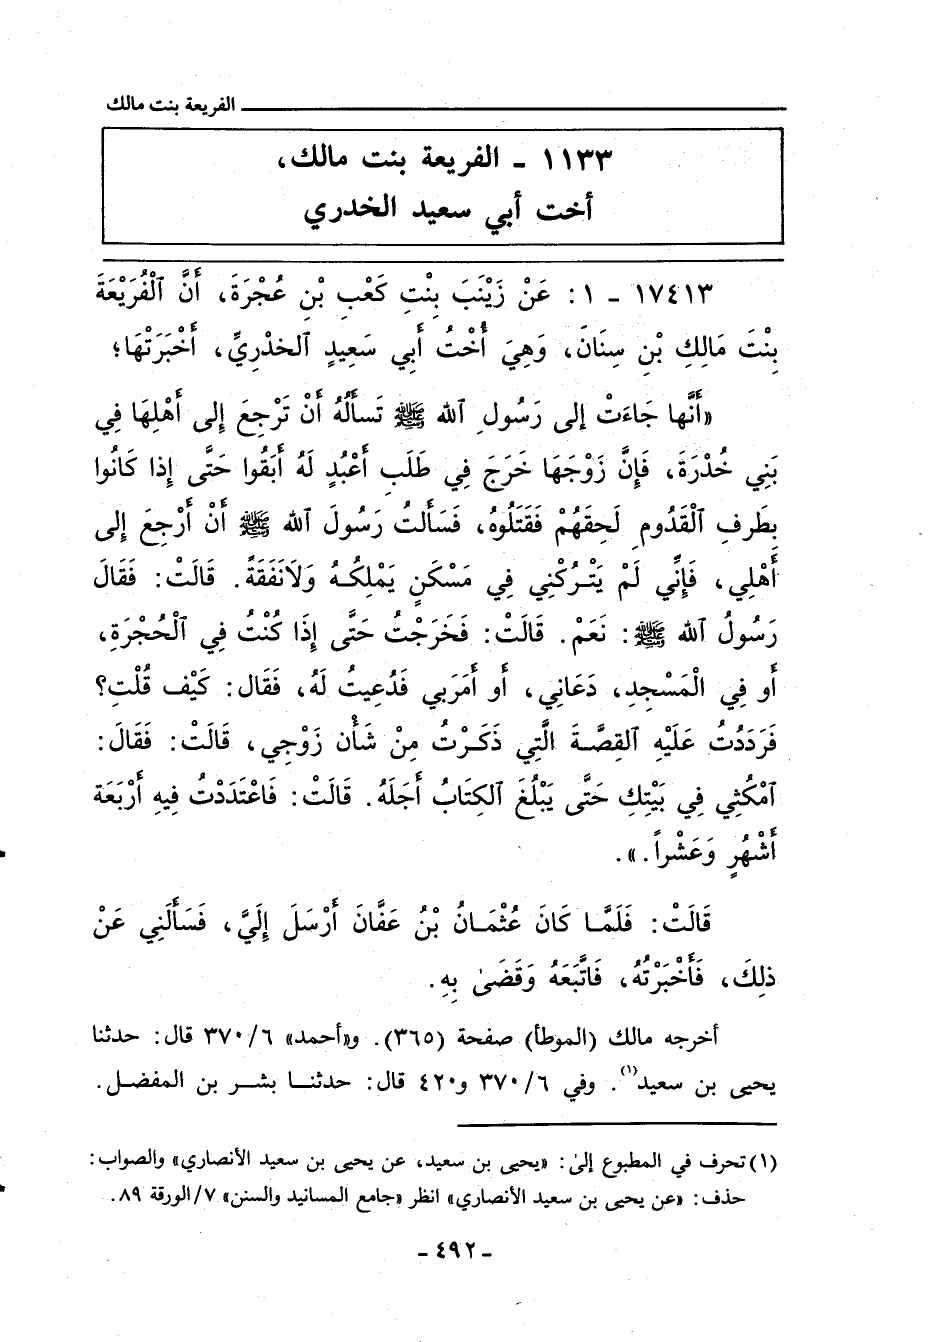 الفريعة بنت مالك
١١٣٣ - الفريعة بنت مالك،
أخت أبي سعيد الخدري
١٧٤١٣ - ١: عَنْ زَيْنَبَ بِنْتِ كَعْبِ بْنِ عُجْرَةَ، أَنَّ ٱلْفُرَيْعَةَ
بِنْتَ مَالِكِ بْنِ سِنَانَ، وَهِيَ أُخْتُ أَبِي سَعِيدٍ ٱلخدْرِيِّ، أَخْبَرَتْهَا؛
«أَنَّها جَاءَتْ إلى رَسُولِ ٱلله ﷺ تَسأَلُهُ أَنْ تَرْجِعَ إلى أَهْلِهَا فِي
بَنِي خُدْرَةَ، فَإِنَّ زَوْجَهَا خَرَجَ فِي طَلَبِ أَعْبُدٍ لَهُ أَبَقُوا حَتَّى إذا كَانُوا
بِطَرفِ ٱلْقَدُومِ لَحِقَهُمْ فَقَتَلُوهُ، فَسَأَلتُ رَسُولَ ٱلله ﷺ أَنْ أَرْجِعَ إلى
أَهْلِي، فَإِنِّي لَمْ يَتْرُكْنِي فِي مَسْكَنٍ يَمْلِكُهُ وَلَانَفَقَةً. قَالَتْ: فَقَالَ
رَسُولُ ٱلله ﷺ: نَعَمْ. قَالَتْ: فَخَرَجْتُ حَتَّى إِذَا كُنْتُ فِي ٱلْحُجْرَةِ،
أَو فِي الْمَسْجِدِ، دَعَانِي، أَو أَمَرَبي فَدُعِيتُ لَهُ، فَقَال: كَيْف قُلْتِ؟
فَرَدَدْتُ عَلَيْهِ ٱلقِصَّةَ الَّتِي ذَكَرْتُ مِنْ شَأْن زَوْجِي، قَالَتْ: فَقَالَ:
ٱمْكُثِي فِي بَيْتِكِ حَتَّى يَبْلُغَ ٱلكِتَابُ أَجَلَهُ. قَالَتْ: فَاعْتَدَدْتُ فِيهِ أَرْبَعَة
أَشْهُرٍ وَعَشْراً.».
قَالَتْ: فَلَمَّا كَانَ عُثْمَانُ بْنُ عَفَّانَ أَرْسَلَ إِلَيَّ، فَسَأَلَنِي عَنْ
ذلِكَ، فَأَخْبَرْتُهُ، فَاتَّبَعَهُ وَقَضَىٰ بِهِ.
أخرجه مالك (الموطأ) صفحة (٣٦٥). و«أحمد» ٣٧٠/٦ قال: حدثنا
يحيى بن سعيد(١). وفي ٣٧٠/٦ و٤٢٠ قال: حدثنا بشر بن المفضل.
(١) تحرف في المطبوع إلىٰ: «يحيى بن سعيد، عن يحيى بن سعيد الأنصاري» والصواب:
حذف: «عن يحيى بن سعيد الأنصاري» انظر «جامع المسانيد والسنن» ٧/الورقة ٨٩.
- ٤٩٢ -